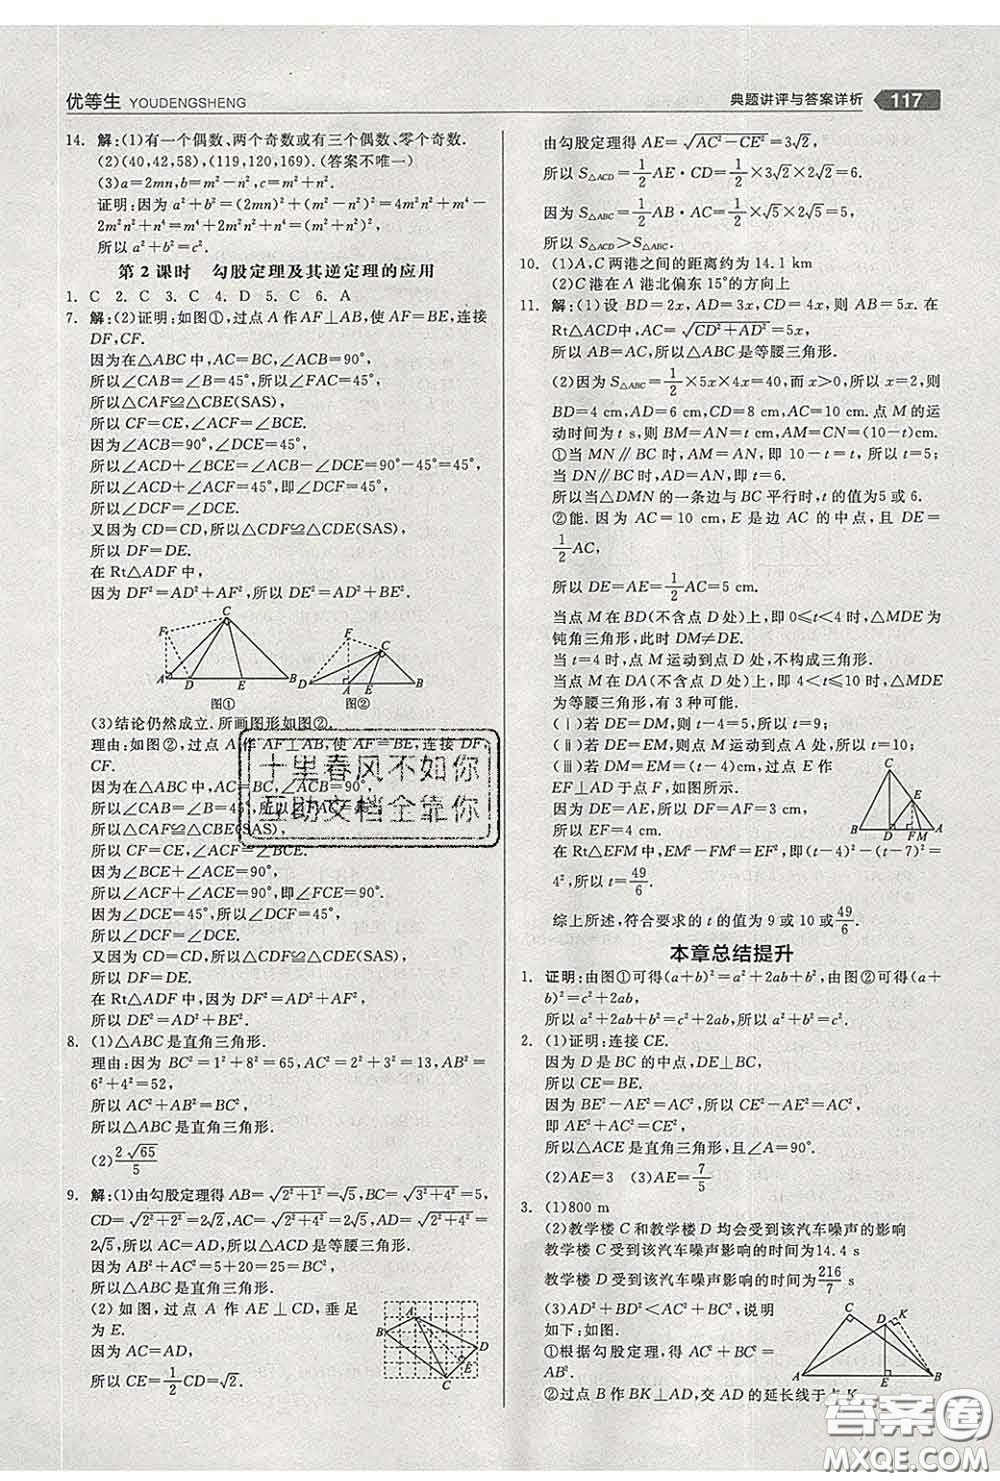 优等生 YOUDENGSHENG
典题讲评与答案详析 117
14. 解:(1)有一个偶数、两个奇数或有三个偶数、零个奇数.
(2)(40,42,58),(119,120,169).(答案不唯一)
(3)a=2mn,b=m²-n²,c=m²+n².
证明:因为 a²+b²=(2mn)²+(m²-n²)²=4m²n²+m⁴-
2m²n²+n⁴=m⁴+2m²n²+n⁴=(m²+n²)²,
所以 a²+b²=c².
第 2 课时 勾股定理及其逆定理的应用
1. C 2. C 3. C 4. D 5. C 6. A
7. 解:(2)证明:如图①,过点 A 作 AF⊥AB,使 AF=BE,连接
DF,CF.
因为在△ABC 中,AC=BC,∠ACB=90°,
所以∠CAB=∠B=45°,所以∠FAC=45°,
所以△CAF≌△CBE(SAS),
所以 CF=CE,∠ACF=∠BCE.
因为∠ACB=90°,∠DCE=45°,
所以∠ACD+∠BCE=∠ACB-∠DCE=90°-45°=45°,
所以∠ACD+∠ACF=45°,即∠DCF=45°,
所以∠DCF=∠DCE.
又因为 CD=CD,所以△CDF≌△CDE(SAS),
所以 DF=DE.
在 Rt△ADF 中,
因为 DF²=AD²+AF²,所以 DE²=AD²+BE².
F C A D E B 图①
F C D A E B 图②
(3)结论仍然成立.所画图形如图②.
理由:如图②,过点 A 作 AF⊥AB,使 AF=BE,连接 DF,
CF.
因为在△ABC 中,AC=BC,∠ACB=90°,
所以△CAF≌△CBE(SAS),
所以 CF=CE,∠ACF=∠BCE.
所以∠ACF+∠ACE=90°,即∠FCE=90°.
因为∠DCE=45°,所以∠DCF=45°,
所以∠DCE=∠DCF.
又因为 CD=CD,所以△CDF≌△CDE(SAS),
所以 DF=DE.
在 Rt△ADF 中,DF²=AD²+AF²,
所以 DE²=AD²+BE².
8. (1)△ABC 是直角三角形.
理由:因为 BC²=1²+8²=65,AC²=2²+3²=13,AB²=
6²+4²=52,
所以 AC²+AB²=BC²,
所以△ABC 是直角三角形.
(2)2√65/5
9. 解:(1)由勾股定理得 AB=√(2²+1²)=√5,BC=√(3²+4²)=5,
CD=√(2²+2²)=2√2,AC=√(2²+4²)=2√5,AD=√(2²+4²)=
2√5,所以 AC=AD,所以△ACD 是等腰三角形.
因为 AB²+AC²=5+20=25=BC²,
所以△ABC 是直角三角形.
(2)如图,过点 A 作 AE⊥CD,垂足
为 E.
因为 AC=AD,
所以 CE=1/2CD=√2.
A B D E C
由勾股定理得 AE=√(AC²-CE²)=3√2,
所以 S△ACD=1/2AE·CD=1/2×3√2×2√2=6.
因为 S△ABC=1/2AB·AC=1/2×√5×2√5=5,
所以 S△ACD>S△ABC.
10. (1)A,C 两港之间的距离约为 14.1 km
(2)C 港在 A 港北偏东 15°的方向上
11. 解:(1)设 BD=2x,AD=3x,CD=4x,则 AB=5x.在
Rt△ACD中,AC=√(CD²+AD²)=5x,
所以 AB=AC,所以△ABC 是等腰三角形.
(2)因为 S△ABC=1/2×5x×4x=40,而 x>0,所以 x=2,则
BD=4 cm,AD=6 cm,CD=8 cm,AC=10 cm.点 M 的运
动时间为 t s,则 BM=AN=t cm,AM=CN=(10-t)cm.
①当 MN∥BC 时,AM=AN,即 10-t=t,所以 t=5;
当 DN∥BC 时,AD=AN,即 t=6.
所以当△DMN 的一条边与 BC 平行时,t 的值为5 或 6.
②能.因为 AC=10 cm,E 是边 AC 的中点,且 DE=
1/2AC,
所以 DE=AE=1/2AC=5 cm.
当点 M 在 BD(不含点 D 处)上,即 0⩽t<4 时,△MDE 为
钝角三角形,此时 DM≠DE.
当 t=4 时,点 M 运动到点 D 处,不构成三角形.
当点 M 在 DA(不含点 D 处)上,即 4<t⩽10 时,△MDE
为等腰三角形,有 3 种可能.
(ⅰ)若 DE=DM,则 t-4=5,所以 t=9;
(ⅱ)若 DE=EM,则点 M 运动到点 A 处,所以 t=10;
(ⅲ)若 DM=EM,如图,过点 E 作
EF⊥AD 于点 F,如图所示.
所以 DF=AF=3,
所以 EF=4.
在 Rt△EFM 中,EM²-FM²=EF²,即(t-4)²-(t-7)²=
4²,所以 t=49/6.
C E B D F M A
综上所述,符合要求的 t 的值为 9 或 10 或49/6.
本章总结提升
1. 证明:由图①可得(a+b)²=a²+2ab+b²,由图②可得(a+
b)²=c²+2ab,
所以 a²+2ab+b²=c²+2ab,所以 a²+b²=c².
2. (1)证明:连接 CE.
因为 D 是 BC 的中点,DE⊥BC,
所以 CE=BE.
因为 BE²-AE²=AC²,所以 CE²-AE²=AC²,
即 AE²+AC²=CE²,
所以△ACE 是直角三角形,且∠A=90°.
(2)AE=3 (3)AE=7/5
3. (1)800 m
(2)教学楼 C 和教学楼 D 均会受到该汽车噪声的影响
教学楼 C 受到该汽车噪声影响的时间为14.4 s
教学楼 D 受到该汽车噪声影响的时间为216/7 s
(3)AD²+BD²<AC²+BC²,说明
如下:如图.
①根据勾股定理,得 AC²+BC²=
AB².
②过点 B 作 BK⊥AD,交 AD 的延长线于点 K
C D K A E B
十里春风不如你
互助文档全靠你
答案圈
MXQE.COM